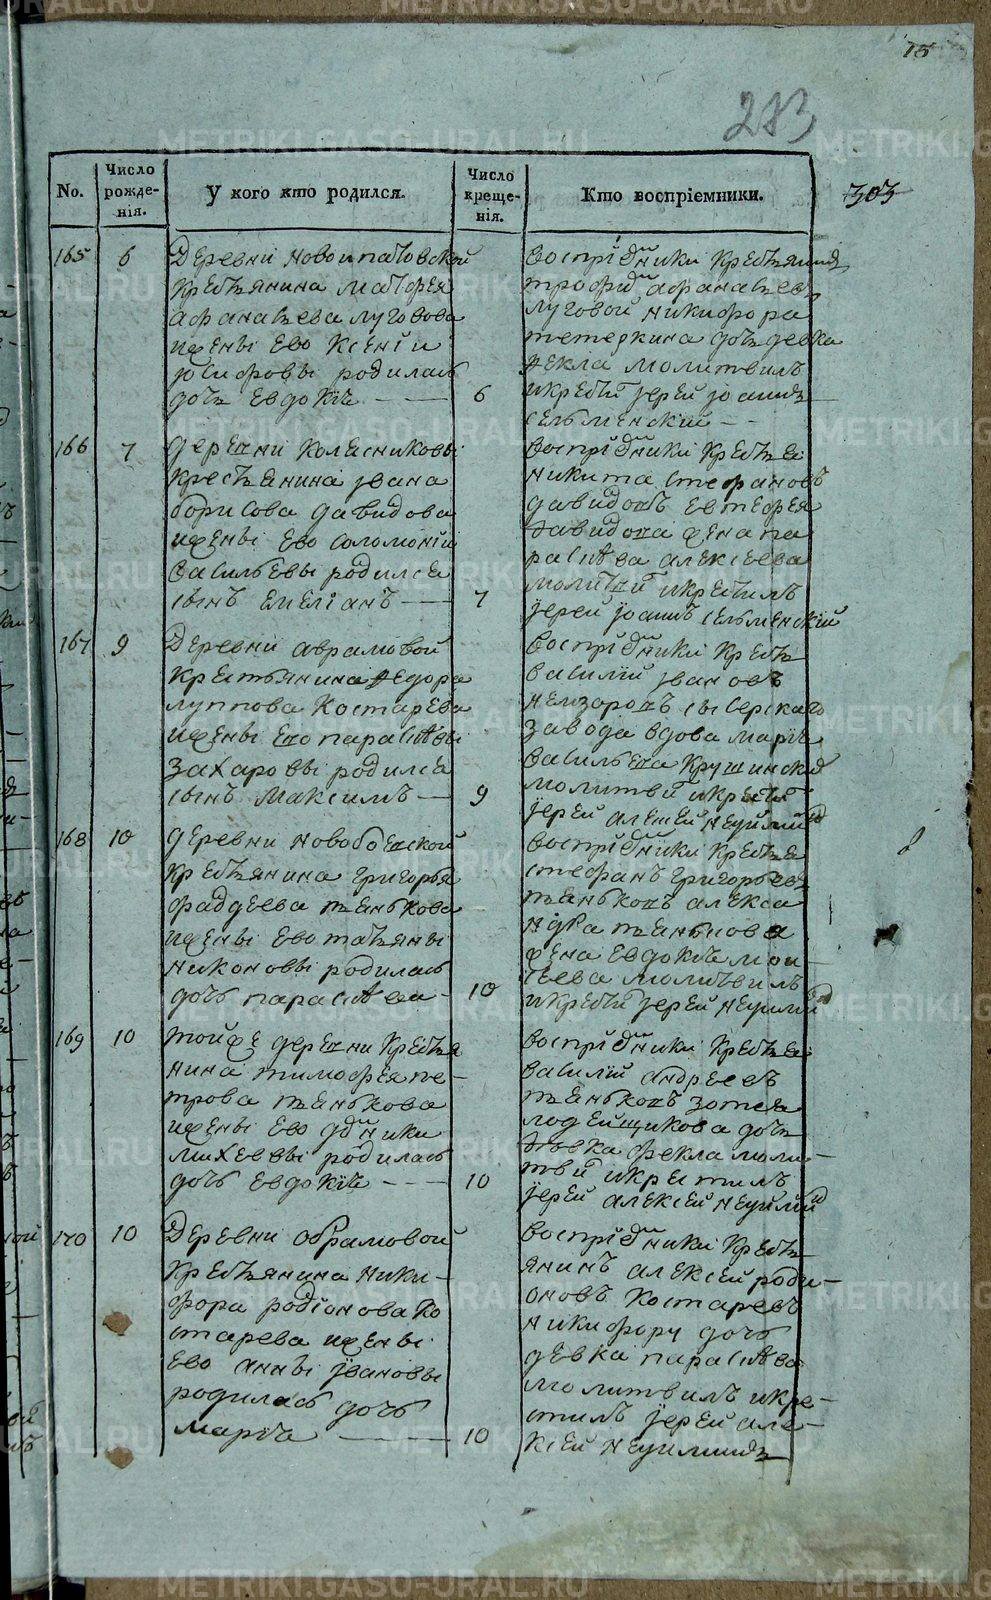 15
283
303
No.
Число рожде-нія.
У кого кто родился.
Число креще-нія.
Кто воспріемники.
165 6
Деревни Новоипатовской
крестьянина Матфея
Афанасьева Луговова
и жены ево Ксении
Иосифовы родилась
дочь Евдокіа 6
воспріемники
Трофим Афанасьев
Луговой Никифора
Тетеркина дочь девка
Фекла молитвилъ
и крестил іерей Іоаннъ
Сельменскій
166 7
деревни Колясниковы
крестьянина Ивана
Борисова Давидова
и жены ево Соломоніи
Васильевы родился
сынъ Емеліанъ 7
воспріемники
Никита Стефановъ
Давидовъ Евтефея
Давидова жена Па
раскѣва Алексеева
молитвил и крестилъ
іерей Іоаннъ Сельменскій
167 9
Деревни Аврамовой
крестьянина Федора
Луппова Костарева
и жены ево Параскѣвы
Захаровы родился
сынъ Максимъ 9
воспріемники
Василій Ивановъ
Сысерскаго
завода вдова Маріа
Васильева
молитвил и крестил
іерей Алексей
168 10
деревни
крестьянина Григорья
Фаддеева Пьянькова
и жены ево Татьяны
Никоновы родилась
дочь Параскѣва 10
воспріемники
Стефанъ Григорьевъ
Пьяньковъ Алекса
ндра Пьянькова
жена Евдокіа Мои
сеева молитвилъ
и крестил іерей
169 10
той же деревни крестья
нина Тимофея Пе-
трова Пьянькова
и жены ево
Михеевы родилась
дочь Евдокіа 10
воспріемники
Василій Андреевъ
Пьяньковъ Зотея
Лодейщикова дочь
дѣвка Фекла моли-
твил и крестилъ
іерей Алексей
170 10
Деревни Обрамовой
крестьянина Ники-
фора Родіонова Ко
старева и жены
ево Анны Ивановы
родилась дочь
Маріа 10
воспріемники кресть
янинъ Алексей Роди-
оновъ Костаревъ
Никифору дочь
девка Параскѣва
молитвилъ и кре-
стилъ іерей Але-
ксей
METRIKI.GASO-URAL.RU